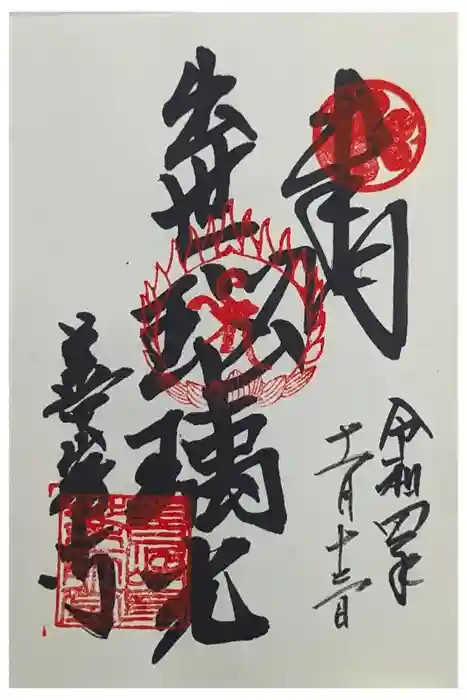 令和四年
十一月十三日
出世瑠璃光
善峯寺